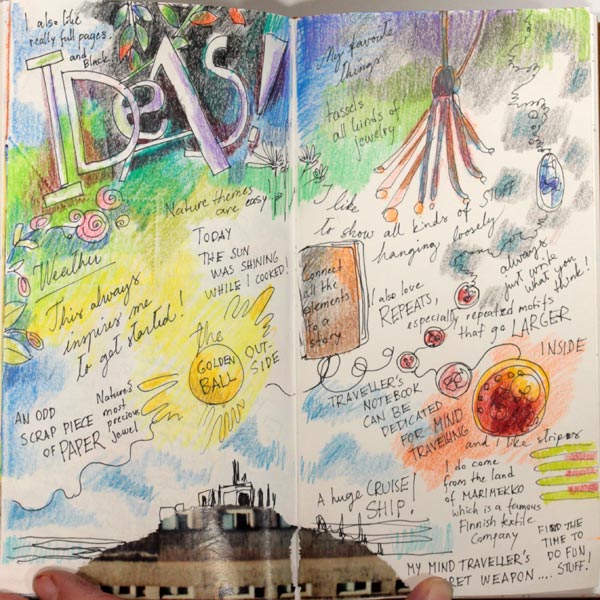 I also like
really full pages,
and black.
IDeAS!
Nature themes
are easy!
TODAY
THE SUN
WAS SHINING
WHILE I COOKED!
Weather
This always
inspires me
to get started!
the
GOLDEN
BALL
OUT-
SIDE
AN ODD
SCRAP PIECE
OF PAPER
Nature's
most
precious
jewel
My favorite
things
tassels
all kinds of
jewelry
I like
to show all kinds of STUFF
hanging loosely
Connect
all the
elements
to a
story
always
just write
what you
think!
I also love
REPEATS,
especially repeated motifs
that go LARGER
INSIDE
TRAVELLER'S
NOTEBOOK
CAN BE
DEDICATED
FOR MIND
TRAVELING
and I like stripes
I do come
from the land
of MARIMEKKO
which is a famous
Finnish textile
Company
A huge CRUISE
SHIP.
FIND THE
TIME TO
DO FUN
STUFF!
MY MIND TRAVELLER'S
RET WEAPON....